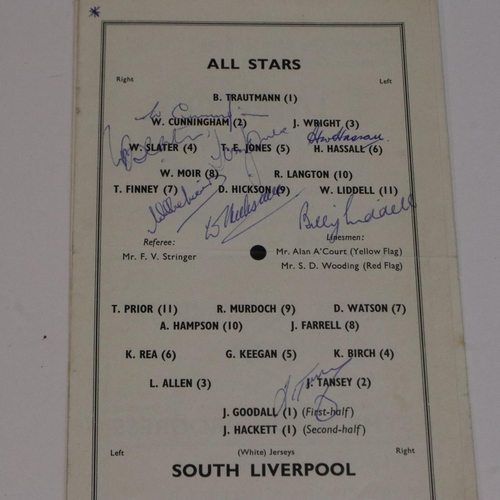 *
ALL STARS
Right Left
B. TRAUTMANN (1)
W. CUNNINGHAM (2) J. WRIGHT (3)
W. SLATER (4) T. E. JONES (5) H. HASSALL (6)
W. MOIR (8) R. LANGTON (10)
T. FINNEY (7) D. HICKSON (9) W. LIDDELL (11)
W Cunningham
W Slater
Tom Jones
H W Hassall
Willie Moir
D Hickson
Billy Liddell
Referee: Linesmen:
Mr. F. V. Stringer Mr. Alan A'Court (Yellow Flag)
Mr. S. D. Wooding (Red Flag)
T. PRIOR (11) R. MURDOCH (9) D. WATSON (7)
A. HAMPSON (10) J. FARRELL (8)
K. REA (6) G. KEEGAN (5) K. BIRCH (4)
L. ALLEN (3) J. TANSEY (2)
J Tansey
J. GOODALL (1) (First-half)
J. HACKETT (1) (Second-half)
Left (White) Jerseys Right
SOUTH LIVERPOOL